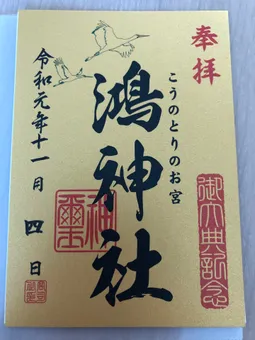 奉拝
御大典記念
こうのとりのお宮
鴻神社
令和元年十一月四日